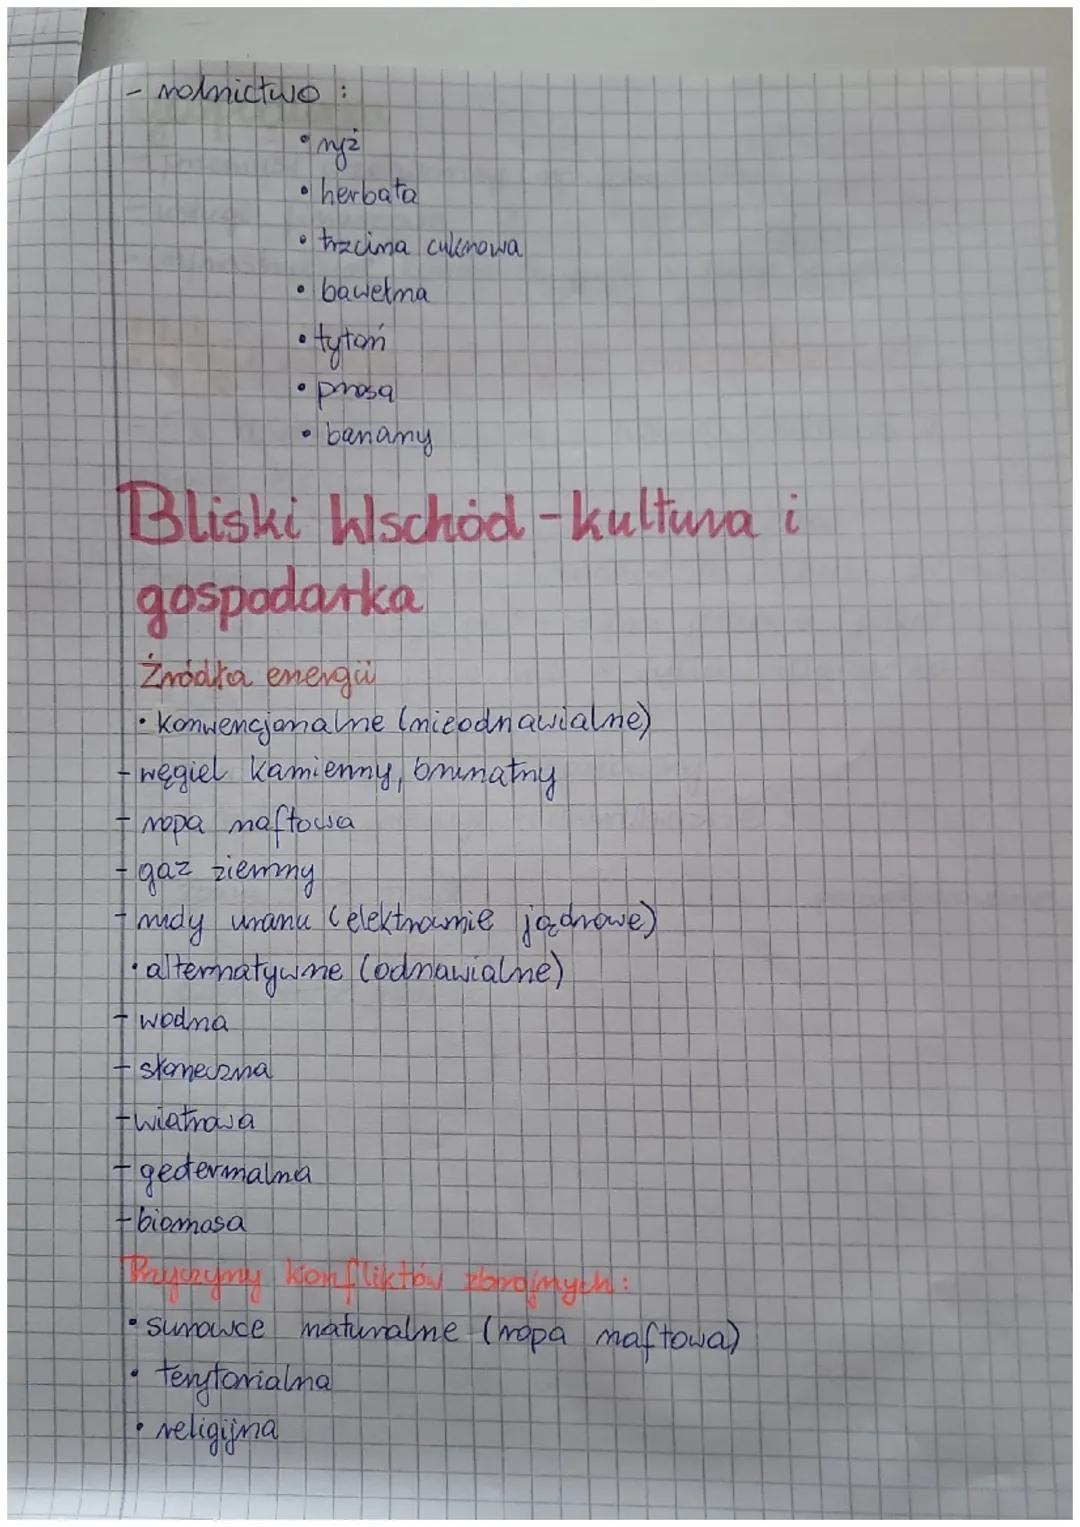 - rolnictwo :
• ryż
• herbata
• trzcina cukrowa
• bawełna
• tytoń
• prosa
• banany
Bliski Wschód - kultura i
gospodarka
Źródła energii
• konwencjonalne (nieodnawialne)
- węgiel kamienny, brunatny
- ropa naftowa
- gaz ziemny
- rudy uranu (elektrownie jądrowe)
• alternatywne (odnawialne)
- wodna
- słoneczna
- wiatrowa
- geotermalna
- biomasa
Przyczyny konfliktów zbrojnych :
• surowce naturalne (ropa naftowa)
• terytorialna
• religijna